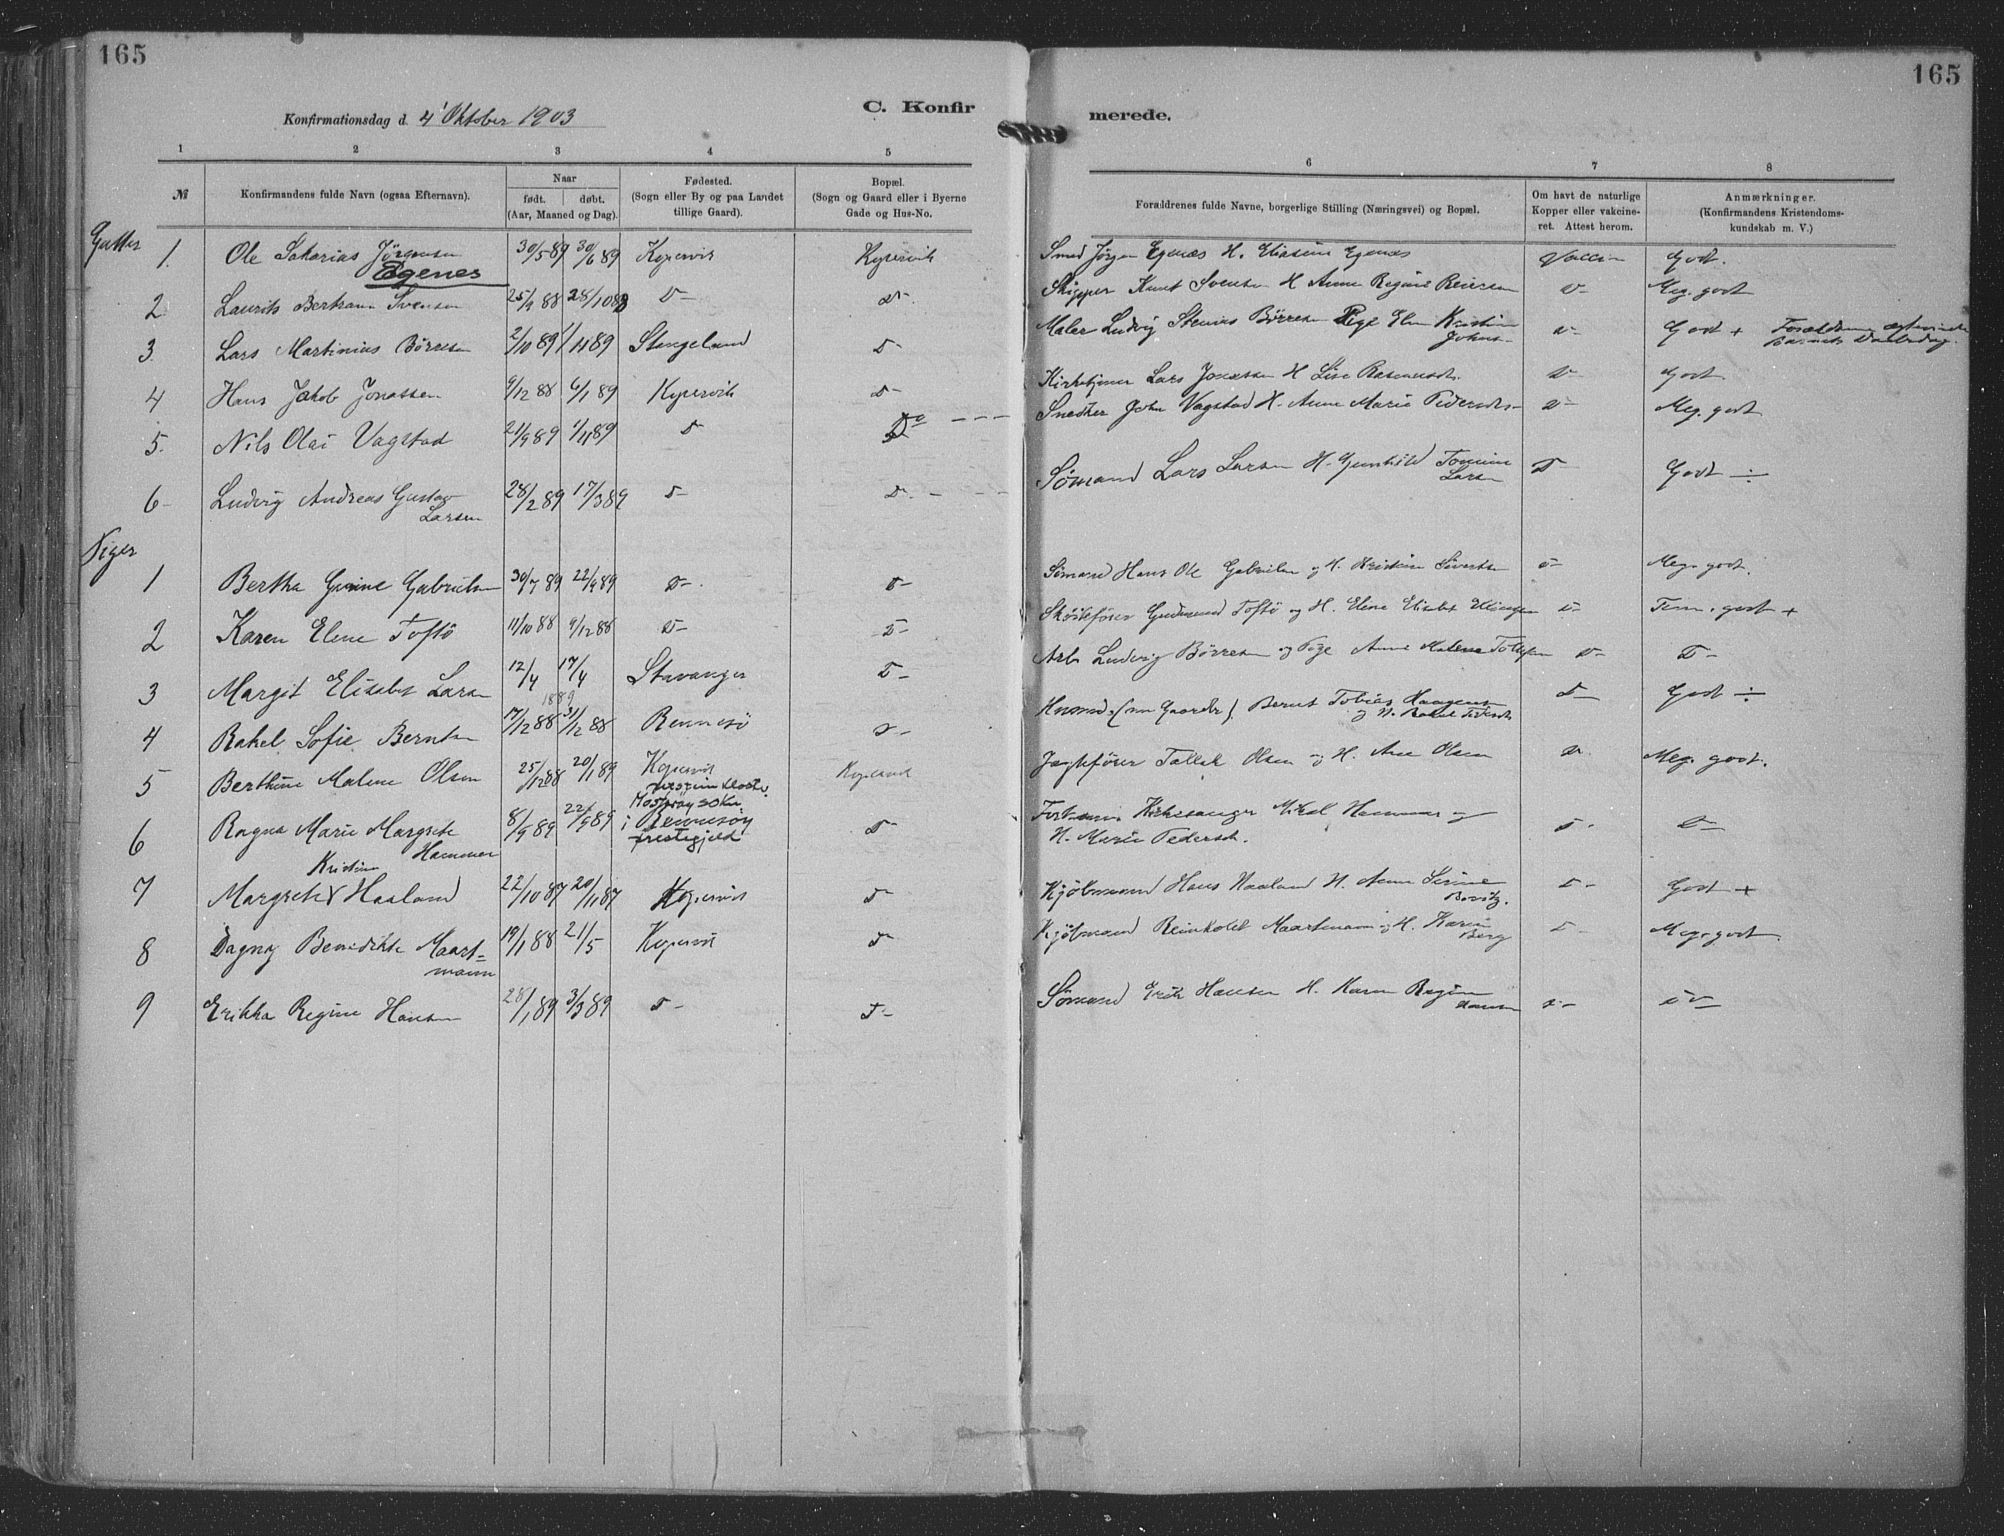 165
165
Konfirmationsdag d. 4' Oktober 1903
C. Konfir
merede.
1 2 3 4 5 6 7 8
№ Konfirmandens fulde Navn (ogsaa Efternavn).
Naar
født. døbt.
(Aar, Maaned og Dag).
Fødested.
(Sogn eller By og paa Landet
tillige Gaard).
Bopæl.
(Sogn og Gaard eller i Byerne
Gade og Hus-No.
Forældrenes fulde Navne, borgerlige Stilling (Næringsvei) og Bopæl.
Om havt de naturlige
Kopper eller vakcine-
ret. Attest herom.
Anmærkninger.
(Konfirmandens Kristendoms-
kundskab m. V.)
Gutter
1. Ole Sakarias Jörgensen 30/5 89 30/6 89 Kopervik Kopervik Smed Jörgen Egenæs H. Egenæs Vaccin Godt.
Egenes
2 Laurits Bertram Svensen 25/9 88 28/10 88 D- D- Skipper Knut Svensen H Anne Regine Reiersen D- Meg. godt
3. Lars Martinius Börresen 2/10 89 Stangeland D- Maler Ludvig Börresen Pige Elen Kristine D- Godt +
4 Hans Jakob Jonassen 9/12 88 6/1 89 Kopervik D- Kirketjener Lars Jonassen H Lise Rasmusdt. D- Godt
5. Nils Olai Vagstad 21/9 89 1/11 89 D D- Snedker John Vagstad H. Anne Marie Pedersdt- D- Meg. godt
6- Ludvig Andreas Gustav 28/2 89 17/3 89 D- D- Sömand Lars Larsen H. Gunhild D Godt ÷
Larsen Larsen
Piger
1 Bertha Gabrielsen 30/7 89 22/9 89 D- D- Sömand Hans Ole Gabrielsen og H. Kristine Sivertsen D- Meg. godt.
2 Karen Elene Toftö 11/10 88 9/12 88 D- D- Gudmund Toftö og H. Elene Elisabet D- Tem. godt +
3 Margit Elisabet Larsen 12/4 17/4 Stavanger D- Arb. Ludvig Börresen og Pige Anne Malene D- D-
1889
4 Rakel Sofie Berntsen 17/12 88 31/12 88 Rennesö D- Husmd. (nu Gaardbr). Bernt Tobias Haagensen D- Godt ÷
5 Berthine Malene Olsen 25/12 88 20/1 89 Kopervik Kopervik Jagtförer Tollak Olsen og H. Ane Olsen D- Meg. godt.
6 Ragna Marie Margrete 8/9 89 22/9 89 Mosterøy sokn i Rennesöy prestegjeld D- Kirkesanger Mikal Hammer og D- D-
Hammer H. Marie Pedersdt.
Kristine
7 Margrete Haaland 22/10 87 20/11 87 Kopervik D- Kjöbmand Hans Haaland H. Anne Serine D- Godt +
8 Dagny Benedikte Maart= 19/1 88 21/5 Kopervik D- Kjöbmand Reinholdt Maartmann og H. Karen D- Meg. godt.
mann Berg
9 Erikka Regine Hansen 28/1 89 3/3 89 D- D- Sömand Erik Hansen H. Karen Regine D- D-
Hansen